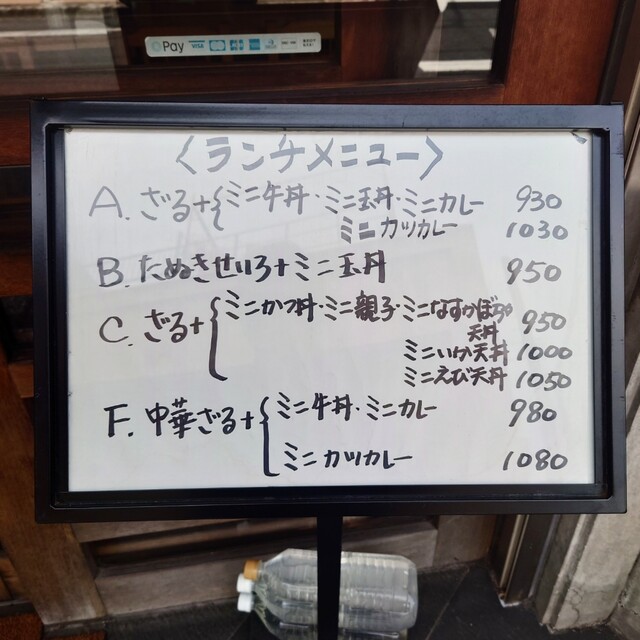 Pay VISA
〈ランチメニュー〉
A. ざる+{ミニ牛丼・ミニ玉丼・ミニカレー 930
ミニカツカレー 1030
B. たぬきせいろ+ミニ玉丼 950
C. ざる+{ミニかつ丼・ミニ親子・ミニなすかぼちゃ 950
天丼
ミニいか天丼 1000
ミニえび天丼 1050
F. 中華ざる+{ミニ牛丼・ミニカレー 980
ミニカツカレー 1080